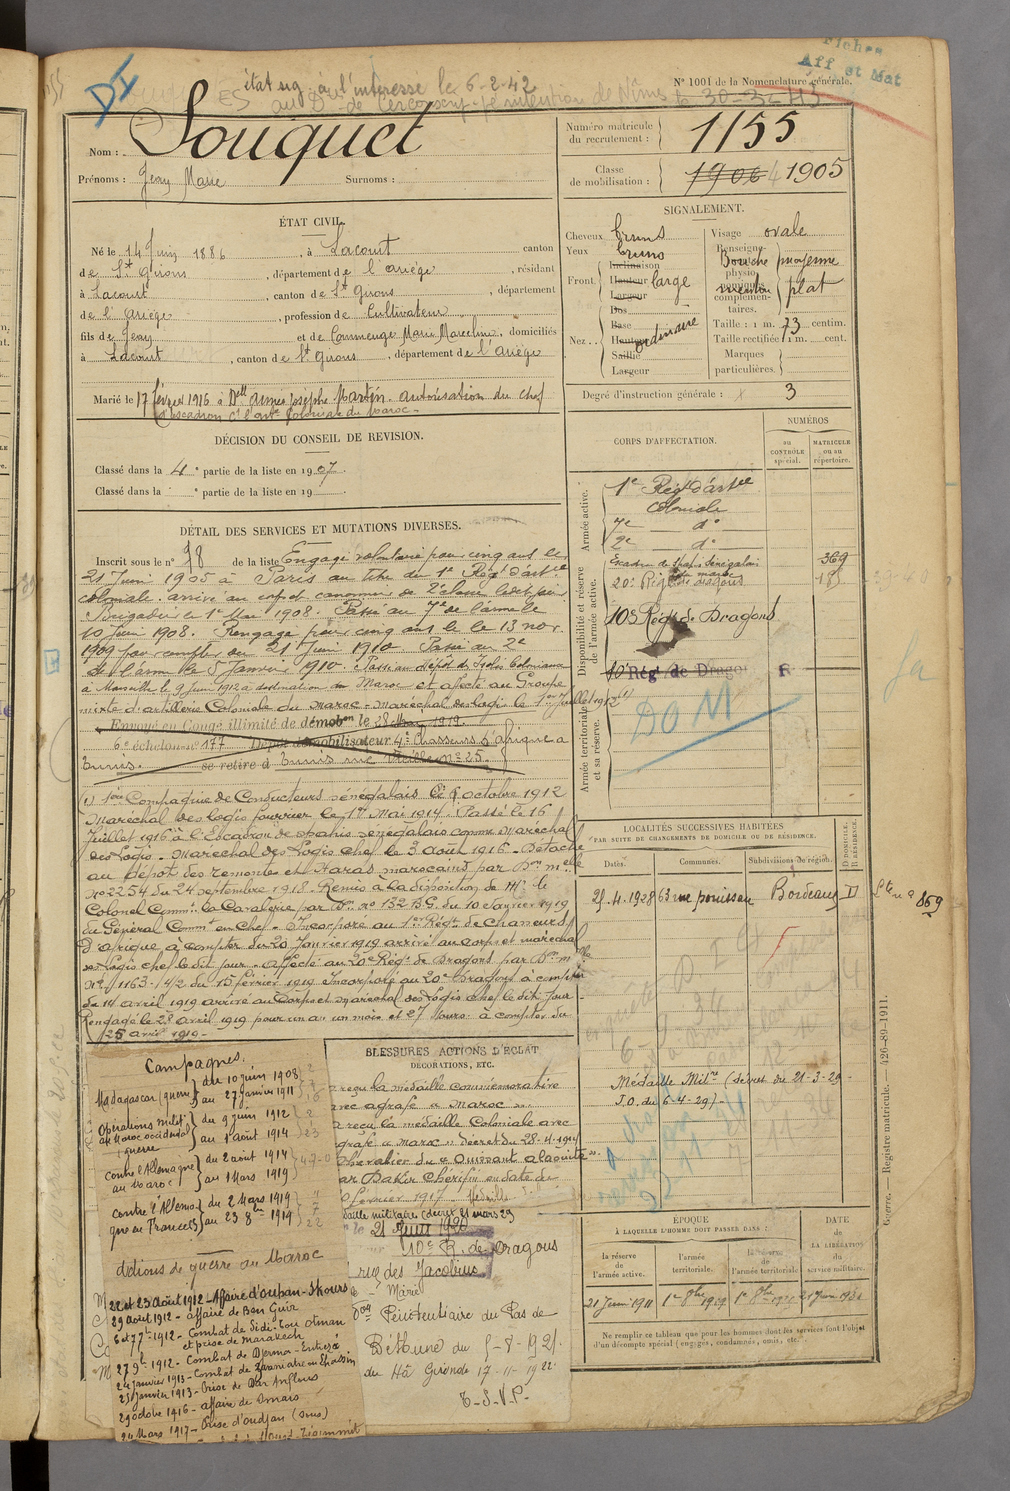 Fiches
Aff et Mat
état sig. à l'intéressé le 6-2-42
N° 1001 de la Nomenclature générale.
DI
Nom : Souquet
Prénoms : Jean Marie Surnoms :
Numéro matricule du recrutement : 1155
Classe de mobilisation : 1906 1905
ÉTAT CIVIL.
Né le 14 Juin 1886, à Lacourt canton
de St Girons, département de l'Ariège, résidant
à Lacourt, canton de St Girons, département
de l'Ariège, profession de Cultivateur
fils de Jean et de Commenge Marie Marceline, domiciliés
à Lacourt, canton de St Girons, département de l'Ariège
Marié le 17 février 1916 à Delle Martin. autorisation du chef
d'escadron Ct l'artie Coloniale du Maroc.
SIGNALEMENT.
Cheveux bruns
Yeux bruns
Front Inclinaison Hauteur Largeur large
Nez Dos Base Hauteur Saillie Largeur ordinaire
Visage ovale
Renseignements physionomiques complémentaires.
Bouche moyenne
menton plat
Taille : 1 m. 73 centim.
Taille rectifiée 1 m. cent.
Marques particulières.
Degré d'instruction générale : 3
DÉCISION DU CONSEIL DE REVISION.
Classé dans la 4e partie de la liste en 1907.
Classé dans la e partie de la liste en 19
CORPS D'AFFECTATION.
NUMÉROS
au CONTRÔLE spécial.
MATRICULE ou au répertoire.
Armée active.
1e Régt d'artie
Coloniale
7e do
2e do
Disponibilité et réserve de l'armée active.
Escadron de Spahis Sénégalais
369
20e Régt de dragons
10e Régt de Dragons
10e Régt de Dragons R
Armée territoriale et sa réserve.
DOM
DÉTAIL DES SERVICES ET MUTATIONS DIVERSES.
Inscrit sous le n° 78 de la liste Engagé volontaire pour cinq ans le
21 Juin 1905 à Paris au titre du 1e Régt d'artie
coloniale. arrivé au corps et canonnier de 2e classe ledit jour
Brigadier le 1er Mai 1908. Passé au 7e de l'arme le
10 Juin 1908. Rengagé pour cinq ans le 13 nov.
1909 pour compter du 21 Juin 1910. Passé au 2e
de l'arme le 5 Janvier 1910. Passé au dépôt des Isolés Coloniaux
à Marseille le 9 Juin 1912 à destination du Maroc et affecté au Groupe
mixte d'artillerie Coloniale du Maroc - Maréchal des logis le 1er Juillet 1912 (1)
Envoyé en Congé illimité de démobon le 28 Mars 1919.
6e échelon n° 177 Dépôt démobilisateur 4e Chasseurs d'Afrique à
Tunis. se retire à Tunis rue n° 25.
(1) 1ère Compagnie de Conducteurs sénégalais le 6 octobre 1912
Maréchal des logis fourrier le 1er Mai 1914. Passé le 16
Juillet 1916 à l'Escadron de spahis sénégalais comme Maréchal
des Logis - Maréchal des Logis chef le 3 août 1916 - Détaché
au dépôt des remontes et Haras marocains par Don melle
n° 2254 du 24 septembre 1918. Remis à la disposition de Mr le
Colonel Commt la Cavalerie par Don n° 132 B.G. du 10 Janvier 1919
du Général Commt en Chef. Incorporé au 1er Régt de Chasseurs
d'Afrique à compter du 20 Janvier 1919 arrivé au corps et maréchal
des Logis chef le dit jour - affecté au 20e Régt de Dragons par Don melle
n° 1163-1/2 du 15 février 1919 Incorporé au 20e Dragons à compter
du 14 avril 1919 arrivé au Corps et maréchal des Logis chef le dit jour
Rengagé le 28 avril 1919 pour un an un mois et 27 jours à compter du
25 avril 1919 -
LOCALITÉS SUCCESSIVES HABITÉES
PAR SUITE DE CHANGEMENTS DE DOMICILE OU DE RÉSIDENCE.
Dates.
Communes.
Subdivisions de région.
D DOMICILE.
R RÉSIDENCE.
25.4.1928 63 rue Bordeaux D
869
Médaille Milre (décret du 21-3-29 -
J.O. du 6-4-29) -
Campagnes.
Madagascar (guerre) du 10 juin 1908
au 27 janvier 1911
Opérations milit. du 9 juin 1912
au Maroc occidental au 1 août 1914
guerre
contre l'Allemagne du 2 août 1914
au Maroc au 1 Mars 1919
contre l'Allemagne du 2 Mars 1919
en France au 23 8bre 1914
Actions de guerre au Maroc
22 et 23 Août 1912 - Affaire d'ouhan-Skours
29 août 1912 - affaire de Ben Guir
6 et 7 7bre 1912 - Combat de Sidi-bou Otman
et prise de marakech
24 janvier 1913 - Combat de
25 janvier 1913 - Prise de Dar Anflous
29 octobre 1916 - affaire de
24 Mars 1917 - Prise d'oudjan (Sous)
BLESSURES ACTIONS D'ÉCLAT
DÉCORATIONS, ETC.
a reçu la médaille commémorative
avec agrafe « Maroc ».
a reçu la médaille Coloniale avec
agrafe « Maroc » décret du 28-4-1914
Chevalier du « Ouissant alaouite ».
par Dahir Chérifien en date du
février 1917. Médaille
militaire (décret 21 mars 29
21 Juin 1920
10e R. de Dragons
rue des Jacobins
Pénitentiaire du Pas de
Béthune du 5-8-1921.
du Hâ Gironde 17-11-1922.
T.S.V.P.
ÉPOQUE
À LAQUELLE L'HOMME DOIT PASSER DANS :
la réserve de l'armée active.
l'armée territoriale.
la réserve de l'armée territoriale.
DATE de LA LIBÉRATION du service militaire.
21 Juin 1911
Ne remplir ce tableau que pour les hommes dont les services sont l'objet
d'un décompte spécial (engagés, condamnés, omis, etc.
Guerre. — Registre matricule. — 426-89-1911.